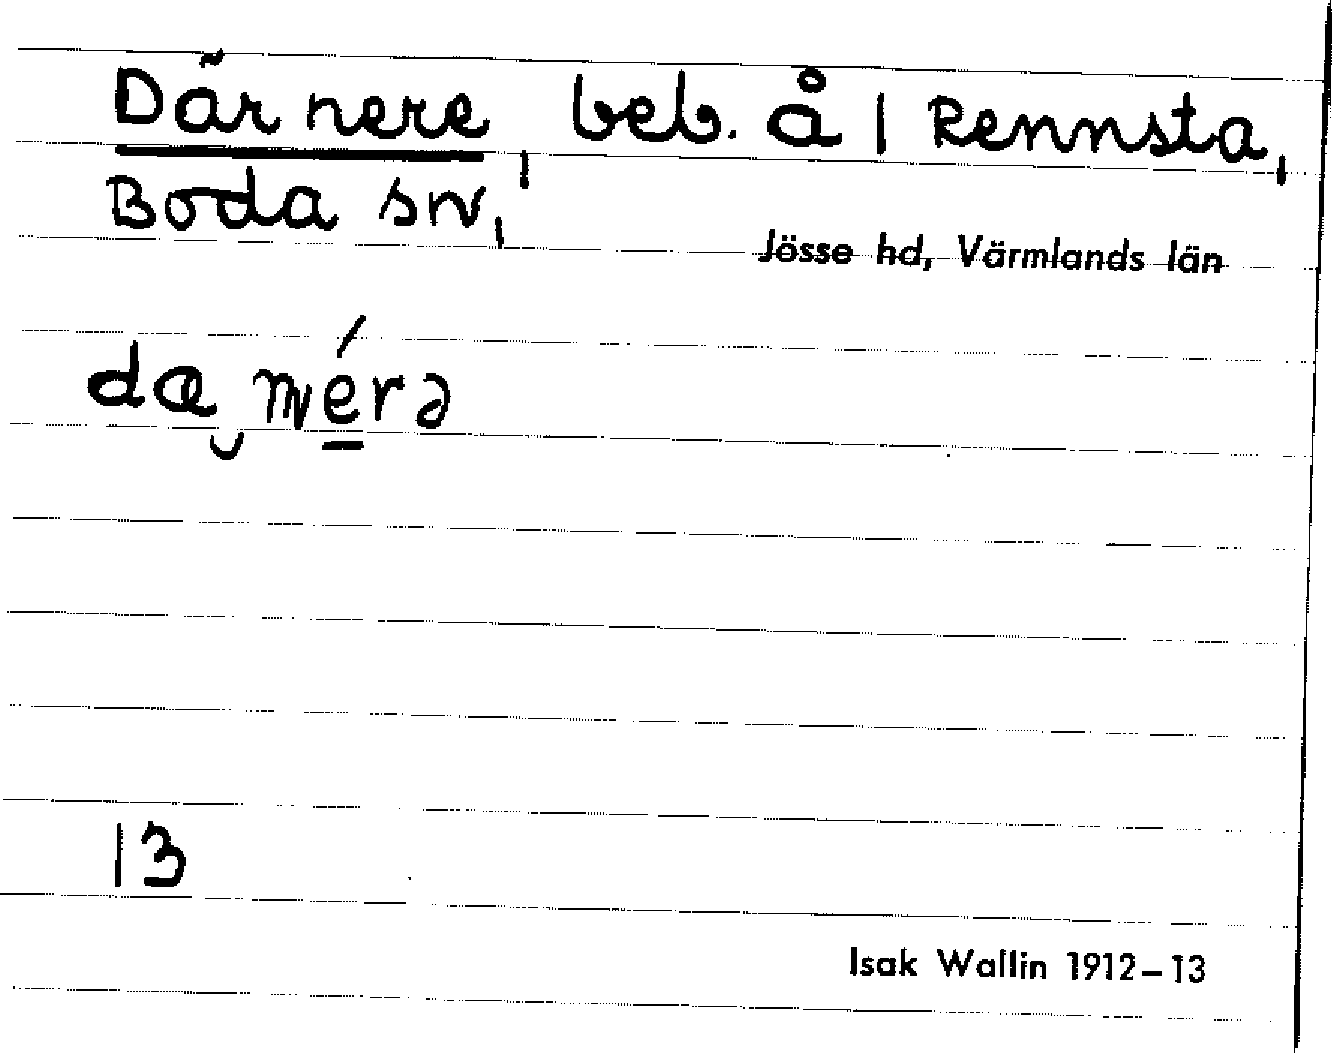 Där nere, beb. å 1 Rennsta,
Boda sn,
Jösse hd, Värmlands län
13
Isak Wallin 1912–13